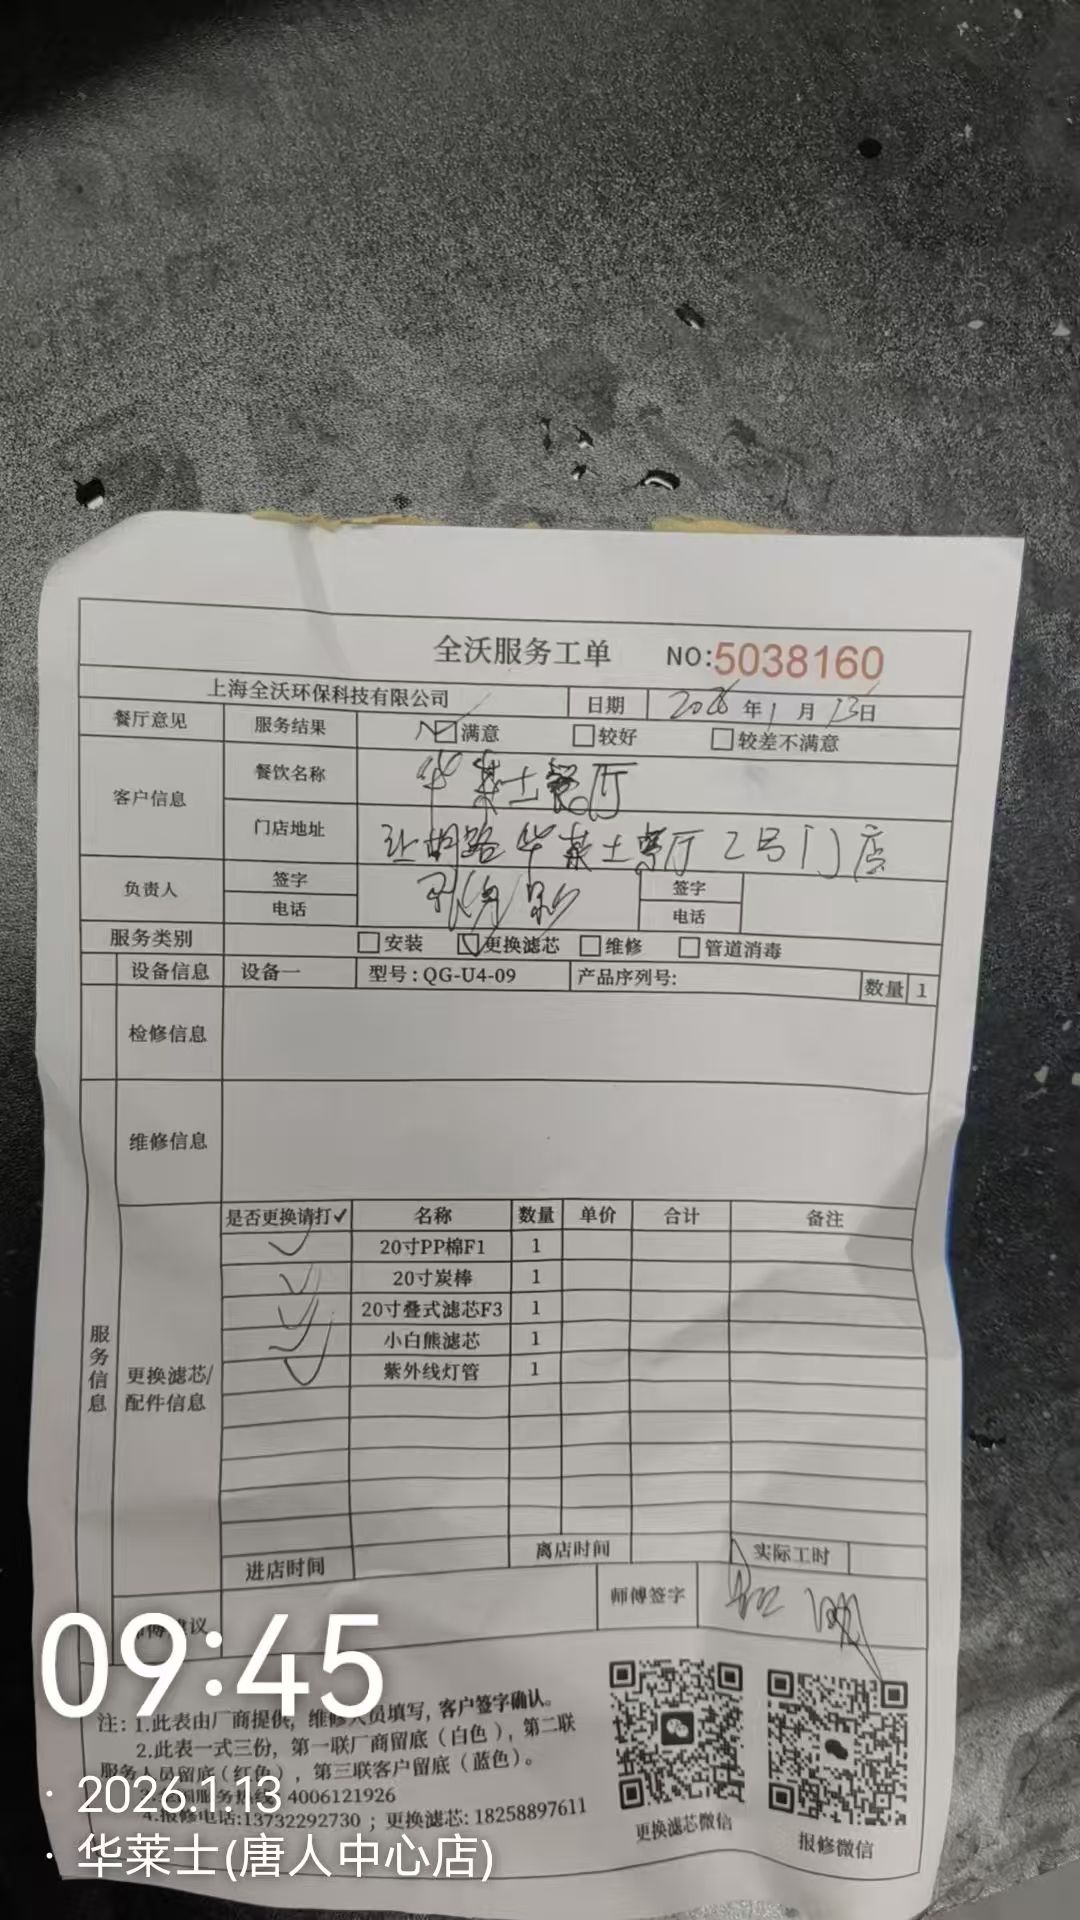 全沃服务工单 NO:5038160
上海全沃环保科技有限公司 日期 2026年1月13日
餐厅意见 服务结果 满意 较好 较差不满意
客户信息 餐饮名称 华莱士餐厅
门店地址 让胡路华莱士餐厅2号门店
负责人 签字 签字
电话 电话
服务类别 安装 更换滤芯 维修 管道消毒
设备信息 设备一 型号:QG-U4-09 产品序列号: 数量 1
检修信息
维修信息
是否更换请打✓ 名称 数量 单价 合计 备注
✓ 20寸PP棉F1 1
✓ 20寸炭棒 1
✓ 20寸叠式滤芯F3 1
✓ 小白熊滤芯 1
✓ 紫外线灯管 1
服务信息
更换滤芯/
配件信息
进店时间 离店时间 实际工时
师傅建议 师傅签字
09:45
注: 1.此表由厂商提供, 维修人员填写, 客户签字确认。
2.此表一式三份, 第一联厂商留底(白色), 第二联
服务人员留底(红色), 第三联客户留底(蓝色)。
4006121926
4.报修电话:13732292730 ; 更换滤芯: 18258897611
更换滤芯微信 报修微信
· 2026.1.13
· 华莱士(唐人中心店)